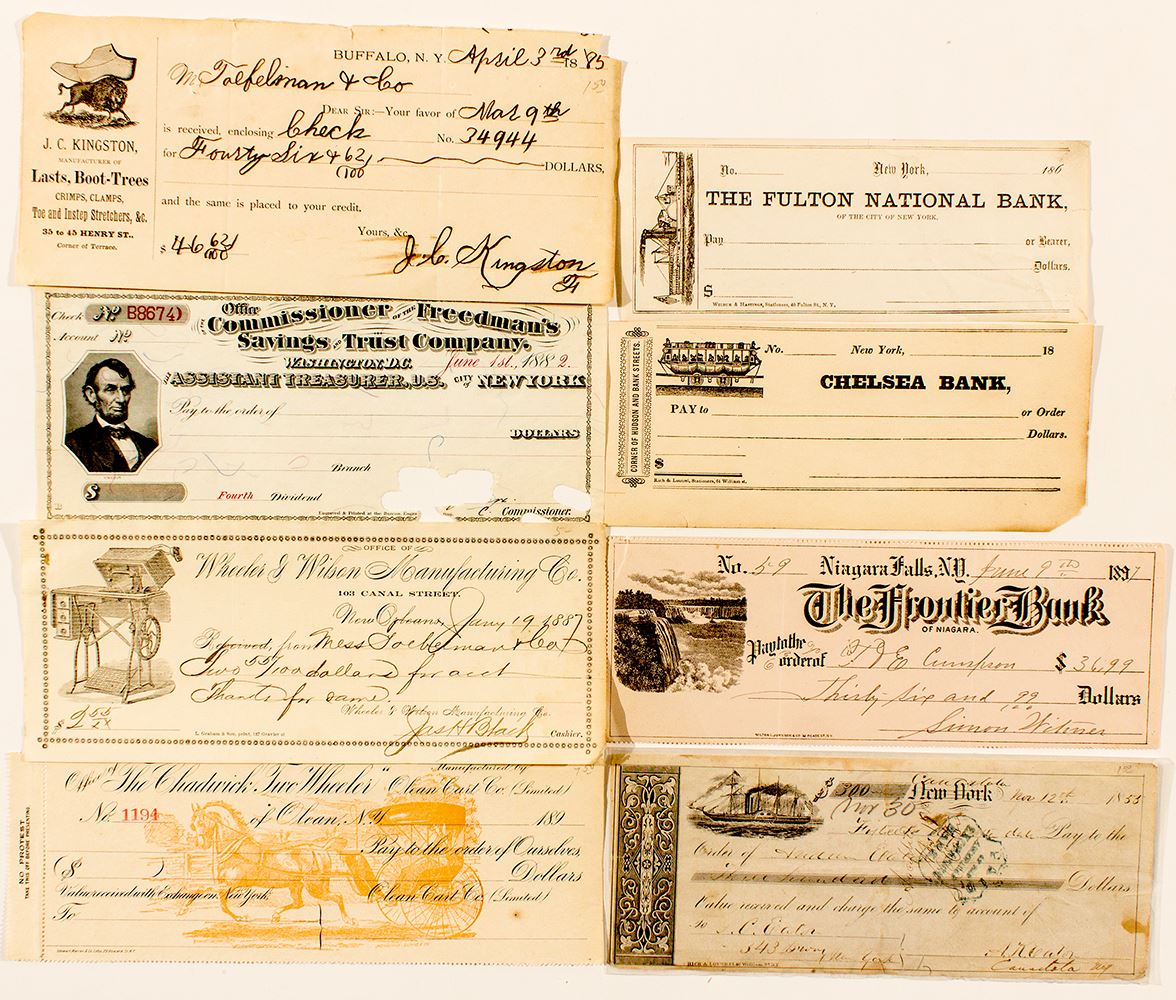 BUFFALO, N. Y. April 3rd 1885
150
M Toebelman & Co
DEAR SIR:—Your favor of Mar 9th
is received, enclosing Check No. 34944
for Fourty Six & 62/100 DOLLARS,
and the same is placed to your credit.
Yours, &c.
$ 46 62/100
J. C. Kingston
J. C. KINGSTON,
MANUFACTURER OF
Lasts, Boot-Trees
CRIMPS, CLAMPS,
Toe and Instep Stretchers, &c.
35 to 45 HENRY ST.,
Corner of Terrace.
No. New York, 186
THE FULTON NATIONAL BANK,
OF THE CITY OF NEW YORK,
Pay or Bearer,
Dollars.
$
Wilbur & Hastings, Stationers, 40 Fulton St., N. Y.
Check No B8674)
Account No
Office
Commissioner OF THE Freedman's
Savings AND Trust Company.
WASHINGTON, D.C. June 1st., 1882.
THE ASSISTANT TREASURER, U.S., CITY OF NEW YORK
Pay to the order of
DOLLARS
Branch
$
Fourth Dividend
Engraved & Printed at the Bureau Engr
Commissioner.
CORNER OF HUDSON AND BANK STREETS.
No. New York, 18
CHELSEA BANK,
PAY to or Order
Dollars.
$
Rich & Loutrel, Stationers, 61 William st.
OFFICE OF
Wheeler & Wilson Manufacturing Co.
103 CANAL STREET.
New Orleans, Jany 19 1887
Received, from Mess Toebelman & Co
Two 55/100 dollars for acct
Thanks for same.
Wheeler & Wilson Manufacturing Co.
$ 2 55
Jas H Black Cashier.
L. Graham & Son, print, 127 Gravier st
No. 59 Niagara Falls, N.Y. June 9th 1897
The Frontier Bank
OF NIAGARA.
Pay to the
order of T V E Cumpson $ 36.99
Thirty six and 99/100 Dollars
Simon Witmer
NO PROTEST
TAKE THIS OFF BEFORE PRESENTING
Office of "The Chadwick Two Wheeler" Manufactured by
Olean Cart Co (Limited)
No. 1194 of Olean, N.Y. 189
Pay to the order of Ourselves,
$ Dollars
Value received with Exchange on New York.
Olean Cart Co (Limited)
To
12
$ 300 Canastota
New York Nov 12th 1855
Pay to the
Order of
Three hundred Dollars
Value received and charge the same to account of
To
343
New York
Canastota NY